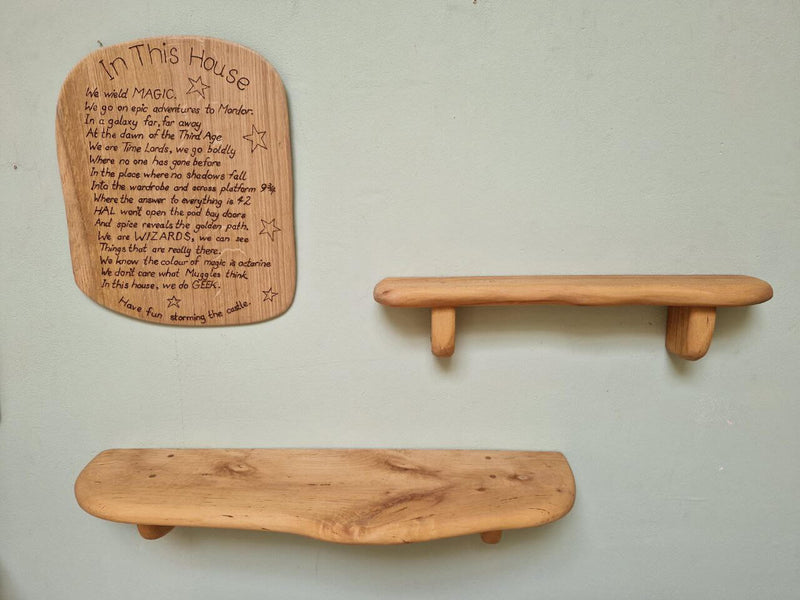 In This House
We wield MAGIC.
We go on epic adventures to Mordor.
In a galaxy far, far away
At the dawn of the Third Age
We are Time Lords, we go boldly
Where no one has gone before
In the place where no shadows fall
Into the wardrobe and across platform 9¾
Where the answer to everything is 42
HAL won't open the pod bay doors
And spice reveals the golden path.
We are WIZARDS, we can see
Things that are really there.
We know the colour of magic is octarine
We don't care what Muggles think
In this house, we do GEEK.
Have fun storming the castle.